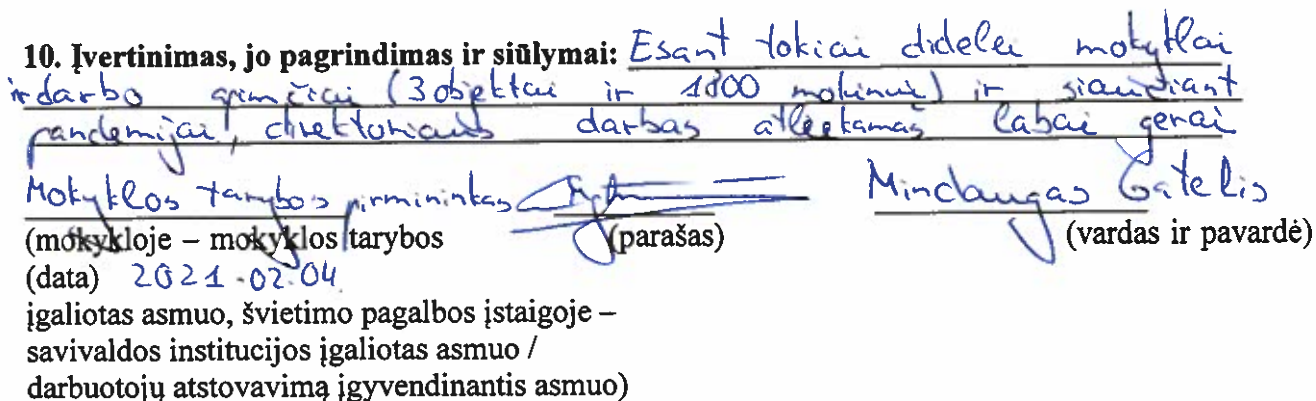 10. Įvertinimas, jo pagrindimas ir siūlymai: Esant tokiai didelei mokyklai
ir darbo apimčiai (3 objektai ir 1800 mokinių) ir siaučiant
pandemijai, direktoriaus darbas atliekamas labai gerai
Mokyklos tarybos pirmininkas Mindaugas Gatelis
(mokykloje – mokyklos tarybos (parašas) (vardas ir pavardė)
(data) 2021.02.04
įgaliotas asmuo, švietimo pagalbos įstaigoje –
savivaldos institucijos įgaliotas asmuo /
darbuotojų atstovavimą įgyvendinantis asmuo)